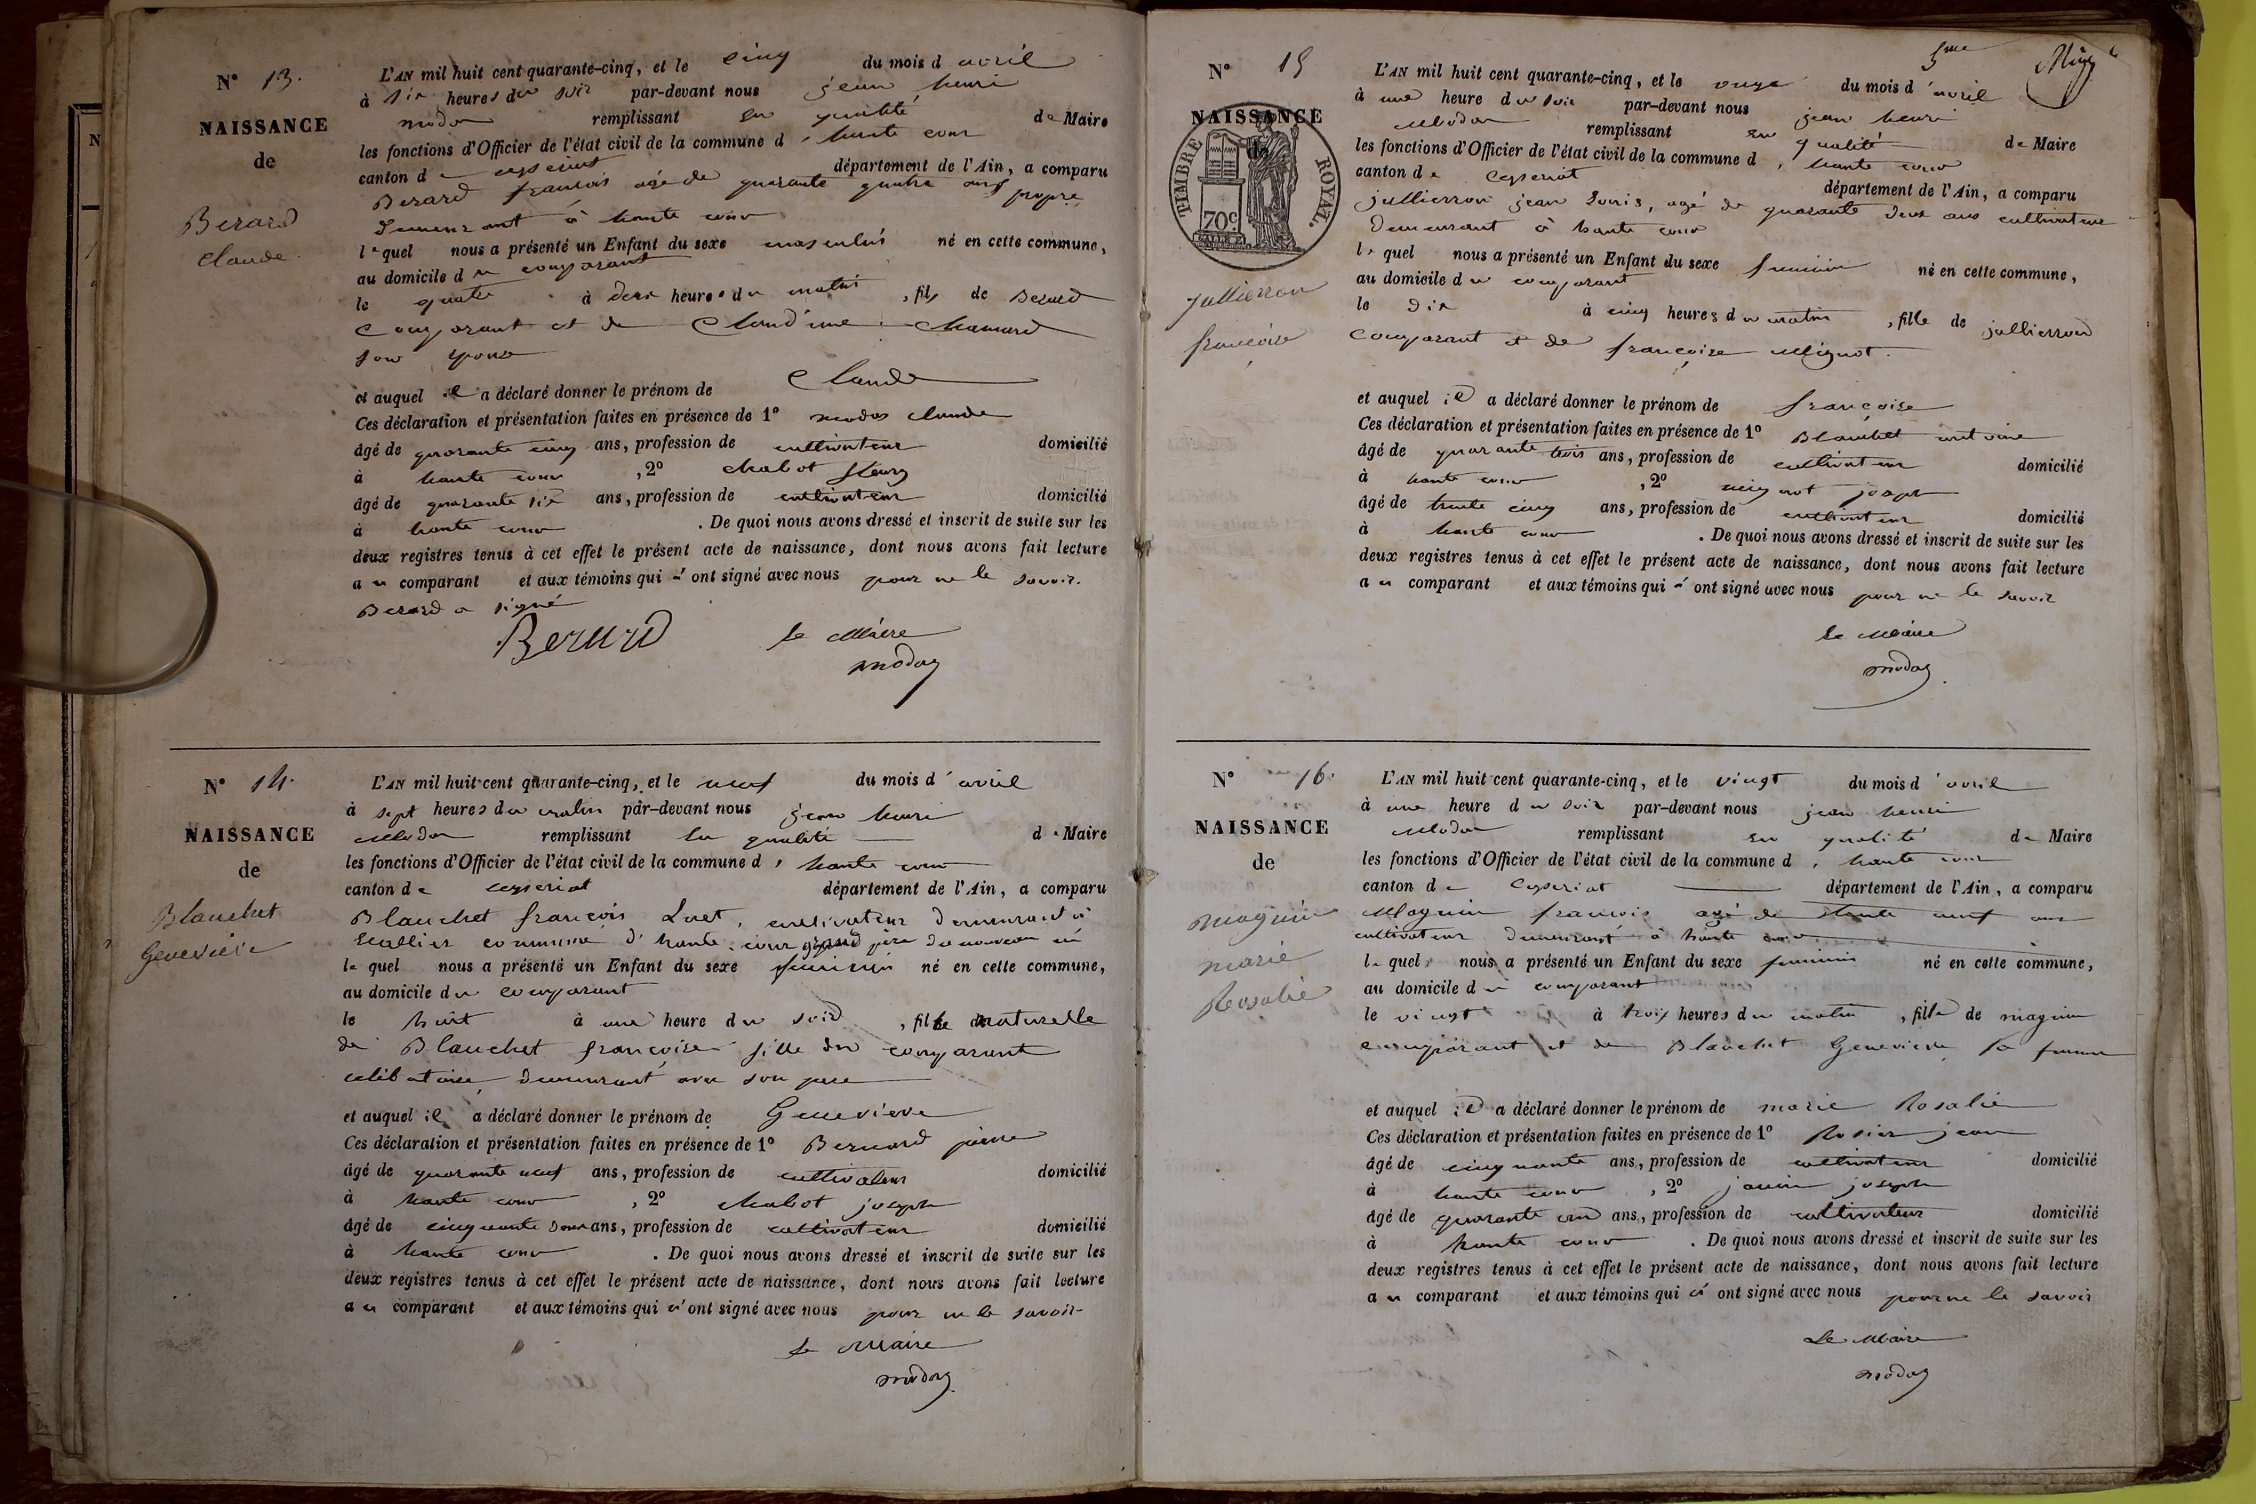 N° 13.
NAISSANCE
de
Berard
Claude
L'AN mil huit cent quarante-cinq, et le cinq du mois d avril
à six heures du soir par-devant nous jean henri
modas remplissant en qualité de Maire
les fonctions d'Officier de l'état civil de la commune d' haute cour
canton de ceyseriat département de l'Ain, a comparu
Berard françois agé de quarante quatre ans propre
demeurant à haute cour
lequel nous a présenté un Enfant du sexe masculin né en cette commune,
au domicile du comparant
le quatre à deux heures du matin, fils de Berard
comparant et de Claudine Chanard
son epouse
et auquel il a déclaré donner le prénom de Claude
Ces déclaration et présentation faites en présence de 1° modas claude
âgé de quarante cinq ans, profession de cultivateur domicilié
à haute cour, 2° chabot fleury
âgé de quarante six ans, profession de cultivateur domicilié
à haute cour. De quoi nous avons dressé et inscrit de suite sur les
deux registres tenus à cet effet le présent acte de naissance, dont nous avons fait lecture
au comparant et aux témoins qui n'ont signé avec nous pour ne le savoir.
Berard a signé
Berard le Maire
modas
N° 14.
NAISSANCE
de
Blanchet
Genevieve
L'AN mil huit cent quarante-cinq, et le neuf du mois d'avril
à sept heures du matin par-devant nous jean henri
Modas remplissant en qualité de Maire
les fonctions d'Officier de l'état civil de la commune d' haute cour
canton de ceyseriat département de l'Ain, a comparu
Blanchet françois cultivateur demeurant à
commune d'haute cour grand père du nouveau né
lequel nous a présenté un Enfant du sexe feminin né en cette commune,
au domicile du comparant
le huit à une heure du soir, fille naturelle
de Blanchet françoise fille du comparant
celibataire demeurant avec son pere
et auquel il a déclaré donner le prénom de Genevieve
Ces déclaration et présentation faites en présence de 1° Bernard pierre
âgé de quarante neuf ans, profession de cultivateur domicilié
à haute cour, 2° chabot joseph
âgé de cinquante deux ans, profession de cultivateur domicilié
à haute cour. De quoi nous avons dressé et inscrit de suite sur les
deux registres tenus à cet effet le présent acte de naissance, dont nous avons fait lecture
au comparant et aux témoins qui n'ont signé avec nous pour ne le savoir
le Maire
modas
5me
N° 15
NAISSANCE
de
TIMBRE ROYAL.
70c.
jullierron
françoise
L'AN mil huit cent quarante-cinq, et le onze du mois d'avril
à une heure du soir par-devant nous jean henri
Modas remplissant en qualité de Maire
les fonctions d'Officier de l'état civil de la commune d' haute cour
canton de Ceyseriat département de l'Ain, a comparu
jullierron jean Louis, agé de quarante deux ans cultivateur
demeurant à haute cour
lequel nous a présenté un Enfant du sexe feminin né en cette commune,
au domicile du comparant
le dix à cinq heures du matin, fille de jullierron
comparant et de françoise Mignot.
et auquel il a déclaré donner le prénom de françoise
Ces déclaration et présentation faites en présence de 1° Blanchet antoine
âgé de quarante trois ans, profession de cultivateur domicilié
à haute cour, 2° mignot joseph
âgé de trente cinq ans, profession de cultivateur domicilié
à haute cour. De quoi nous avons dressé et inscrit de suite sur les
deux registres tenus à cet effet le présent acte de naissance, dont nous avons fait lecture
au comparant et aux témoins qui n'ont signé avec nous pour ne le savoir
le Maire
modas
N° 16.
NAISSANCE
de
magnin
marie
Rosalie
L'AN mil huit cent quarante-cinq, et le vingt du mois d'avril
à une heure du soir par-devant nous jean henri
Modas remplissant en qualité de Maire
les fonctions d'Officier de l'état civil de la commune d' haute cour
canton de Ceyseriat département de l'Ain, a comparu
Magnin francois agé de trente neuf ans
cultivateur demeurant à haute cour
lequel nous a présenté un Enfant du sexe feminin né en cette commune,
au domicile du comparant
le vingt à trois heures du matin, fille de magnin
comparant et de Blanchet Genevieve sa femme
et auquel il a déclaré donner le prénom de marie Rosalie
Ces déclaration et présentation faites en présence de 1° Rosier jean
âgé de cinquante ans, profession de cultivateur domicilié
à haute cour, 2° janin joseph
âgé de quarante un ans, profession de cultivateur domicilié
à haute cour. De quoi nous avons dressé et inscrit de suite sur les
deux registres tenus à cet effet le présent acte de naissance, dont nous avons fait lecture
au comparant et aux témoins qui n'ont signé avec nous pour ne le savoir
Le Maire
modas